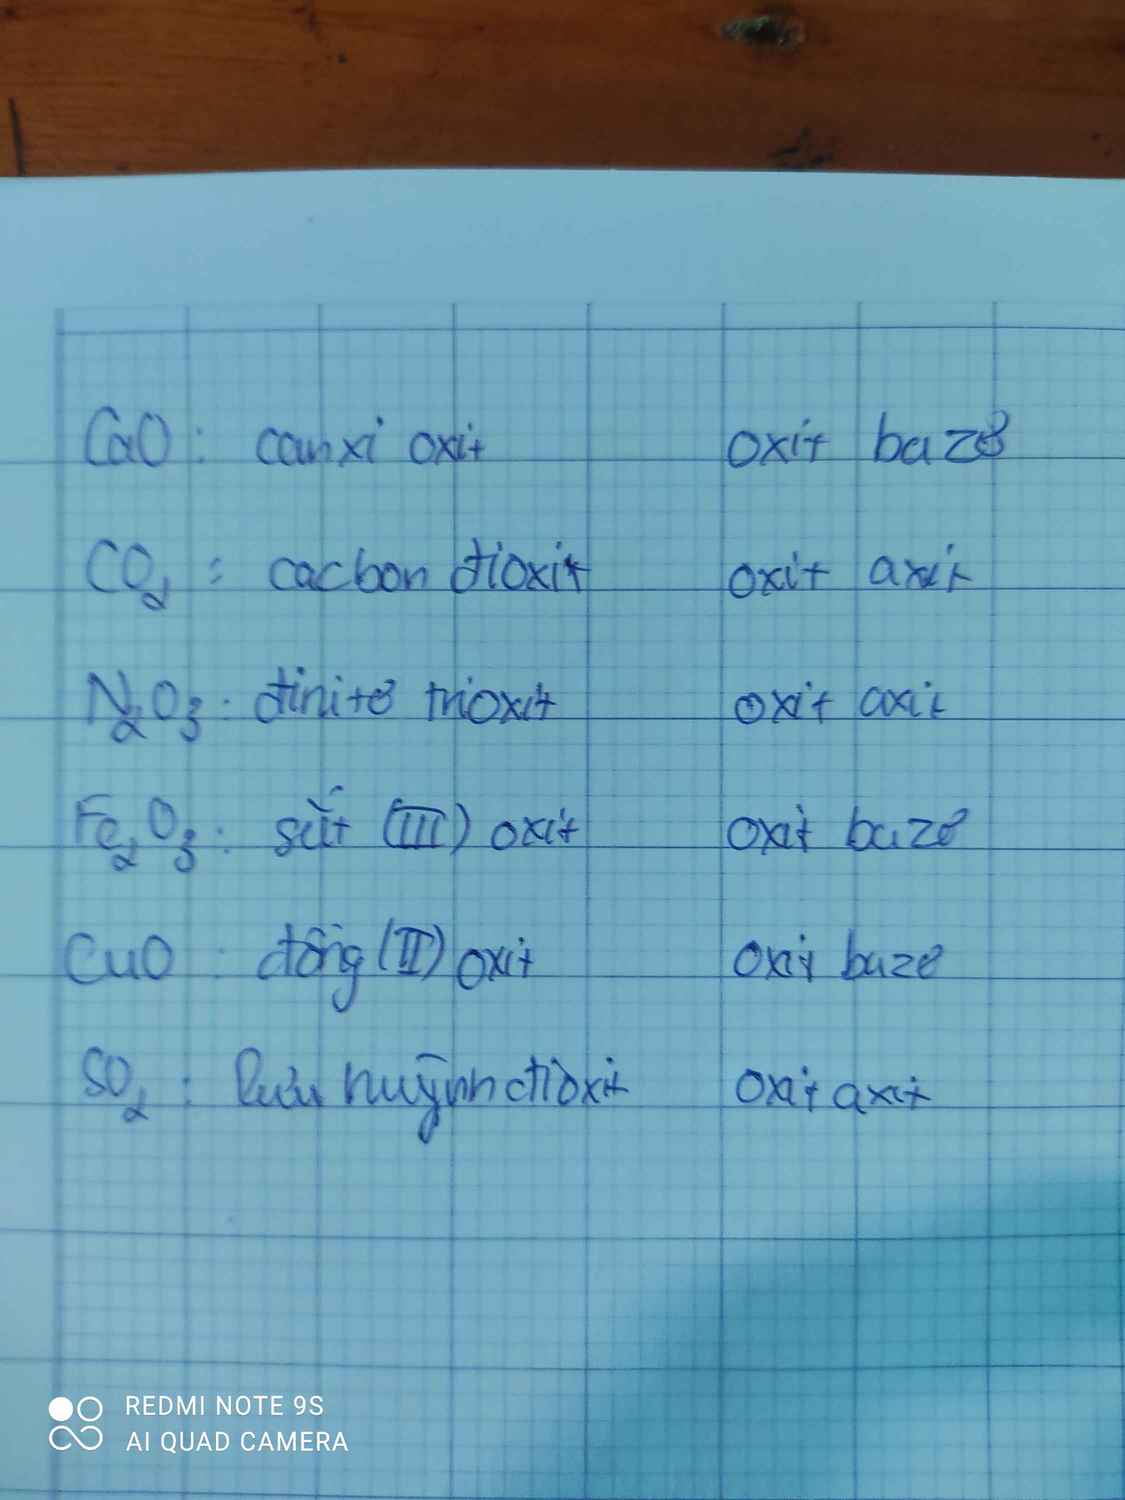 CaO: canxi oxit oxit bazơ
CO₂: cacbon đioxit oxit axit
N₂O₃: đinitơ trioxit oxit axit
Fe₂O₃: sắt (III) oxit oxit bazơ
CuO: đồng (II) oxit oxit bazơ
SO₂: lưu huỳnh đioxit oxit axit
REDMI NOTE 9S
AI QUAD CAMERA